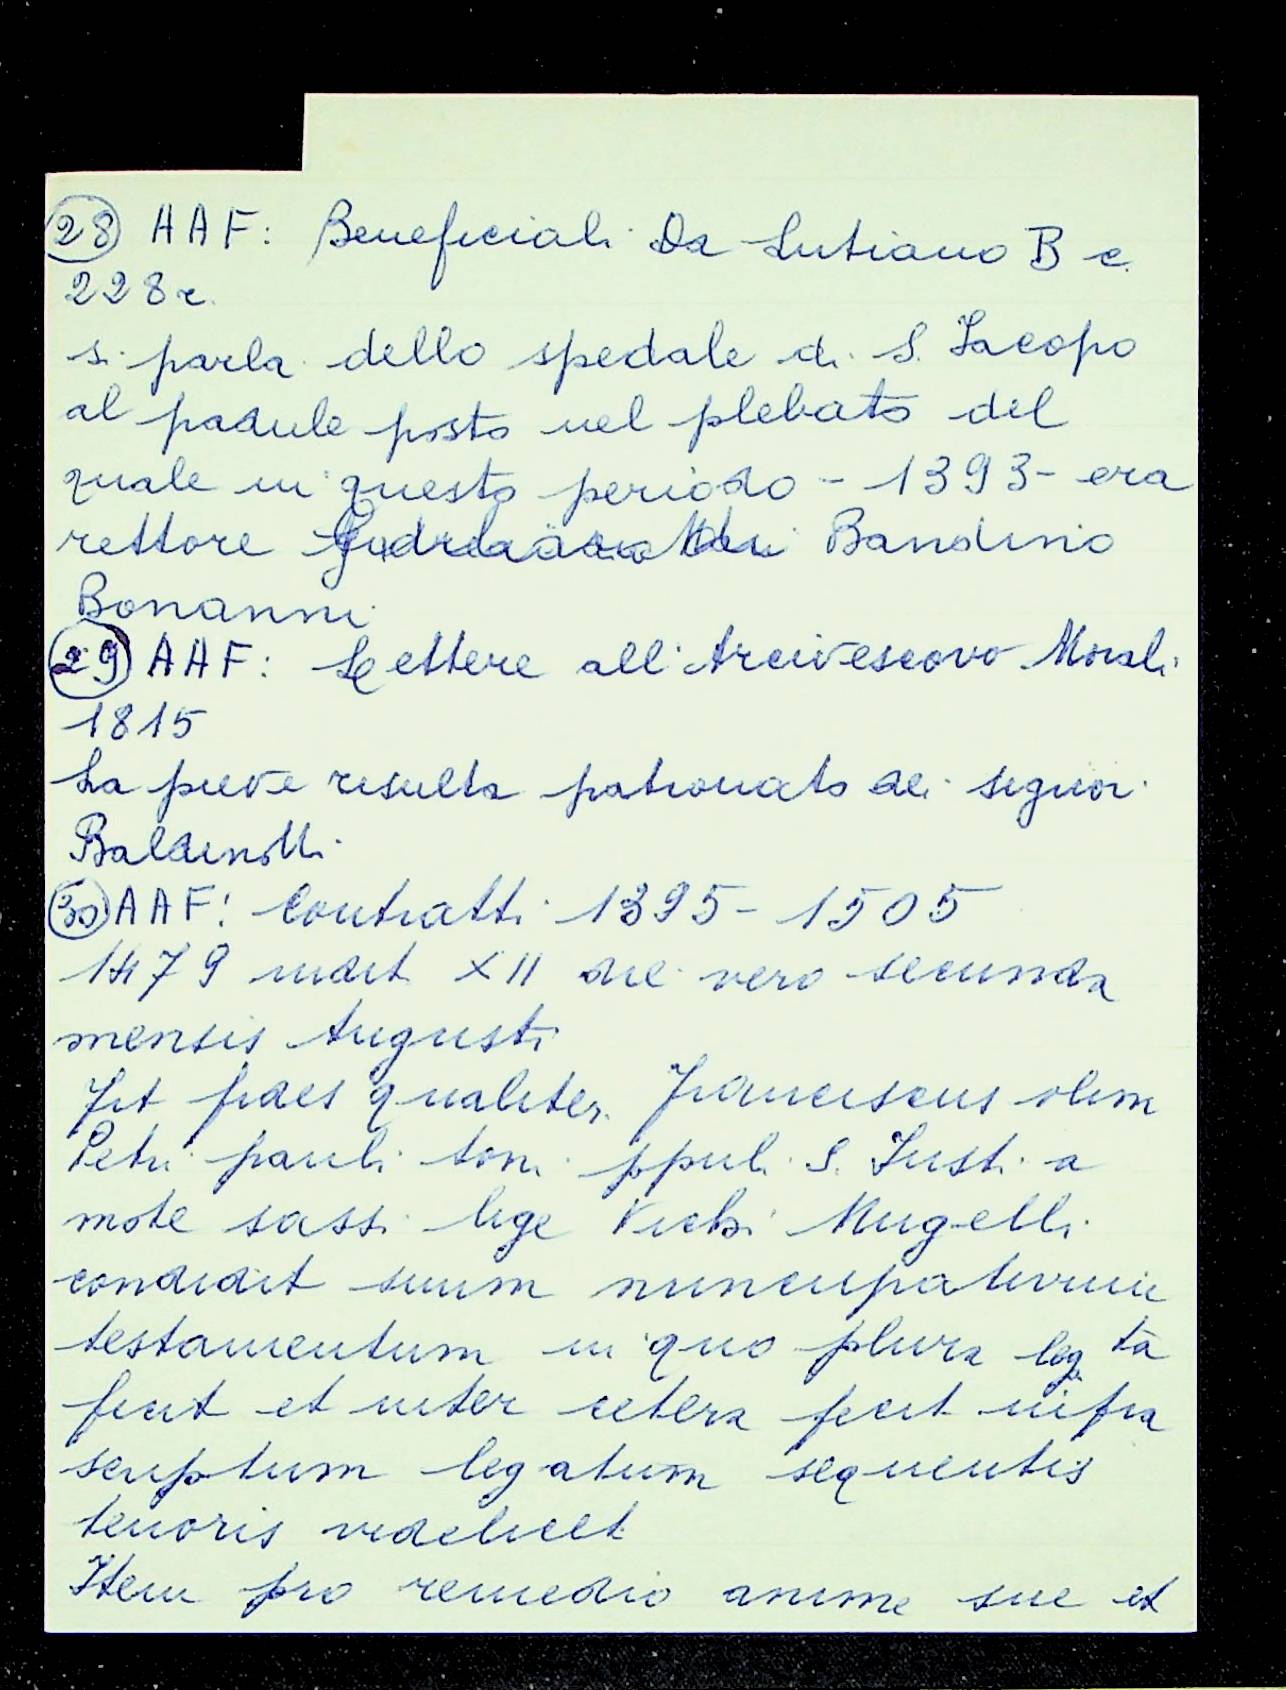 28 AAF: Beneficiali Da Lutiano B c.
228r.
si parla dello spedale di S. Iacopo
al padule posto nel plebato del
quale in questo periodo - 1393 - era
rettore Bandino
Bonanni
29 AAF: Lettere all'Arcivescovo Morali
1815
La pieve risulta patronato dei signori
Baldinotti
30 AAF: Contratti 1395 - 1505
1479 indit XII die vero secunda
mensis Augusti
Fit fides qualiter Franciscus olim
Petri pauli toni ppuli S. Iusti a
mote sassi lige Vichi Mugelli
condidit suum nuncupativum
testamentum in quo plura leg ta
fecit et inter cetera fecit infra
scriptum legatum sequentis
tenoris videlicet
Item pro remedio anime sue et